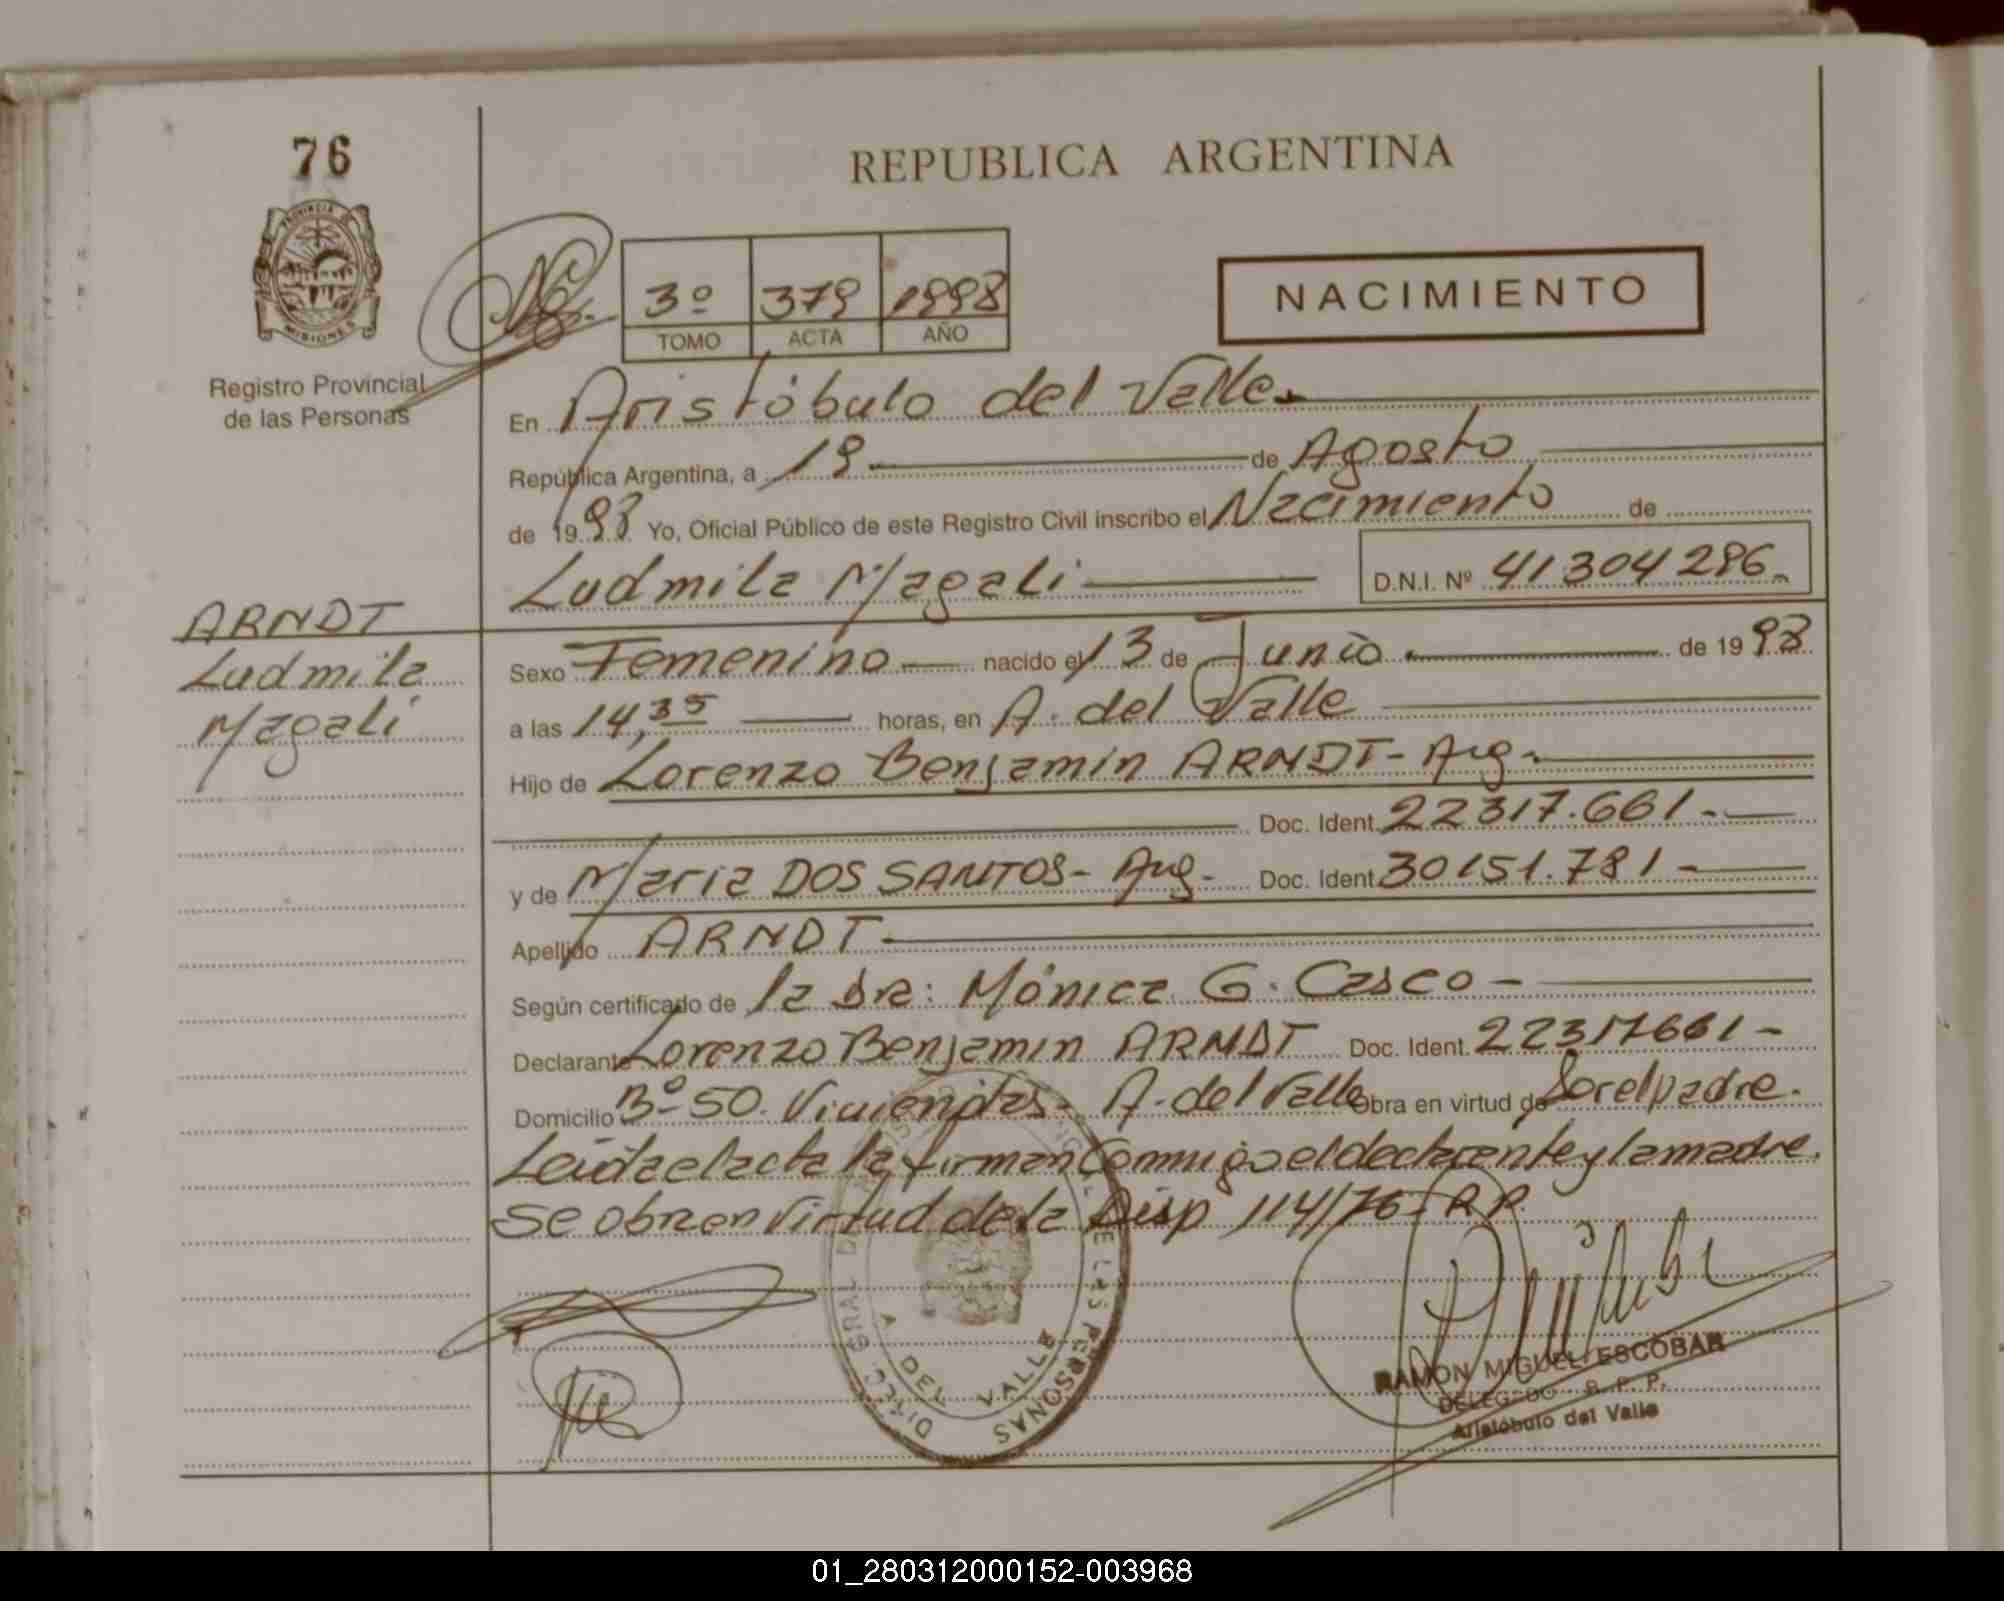 76
REPUBLICA ARGENTINA
PROVINCIA DE
MISIONES
Registro Provincial
de las Personas
3º 379 1998
TOMO ACTA AÑO
NACIMIENTO
En Aristóbulo del Valle.
República Argentina, a 19 de Agosto
de 1998 Yo, Oficial Público de este Registro Civil inscribo el Nacimiento de
Ludmila Magali D.N.I. Nº 41304286
ARNDT
Ludmila
Magali
Sexo Femenino nacido el 13 de Junio de 1998
a las 14,35 horas, en A. del Valle
Hijo de Lorenzo Benjamin ARNDT - Arg -
Doc. Ident. 22317.661 -
y de Maria DOS SANTOS - Arg - Doc. Ident. 30151.781 -
Apellido ARNDT
Según certificado de la Dra: Mónica G. Casco -
Declarante Lorenzo Benjamin ARNDT Doc. Ident. 22317661 -
Domicilio Bº 50. Viviendas - A. del Valle Obra en virtud de Ser el padre.
Leída el acta la firman conmigo el declarante y la madre.
Se obra en virtud de la Disp 114/76 - R.P.
DIREC. GRAL. DE LAS PERSONAS
A DEL VALLE
RAMON MIGUEL ESCOBAR
DELEGADO R. P. P.
Aristóbulo del Valle
01_280312000152-003968